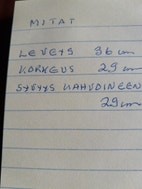 MITAT
LEVEYS 36 cm
KORKEUS 29 cm
SYVYYS KAHVOINEEN
29 cm